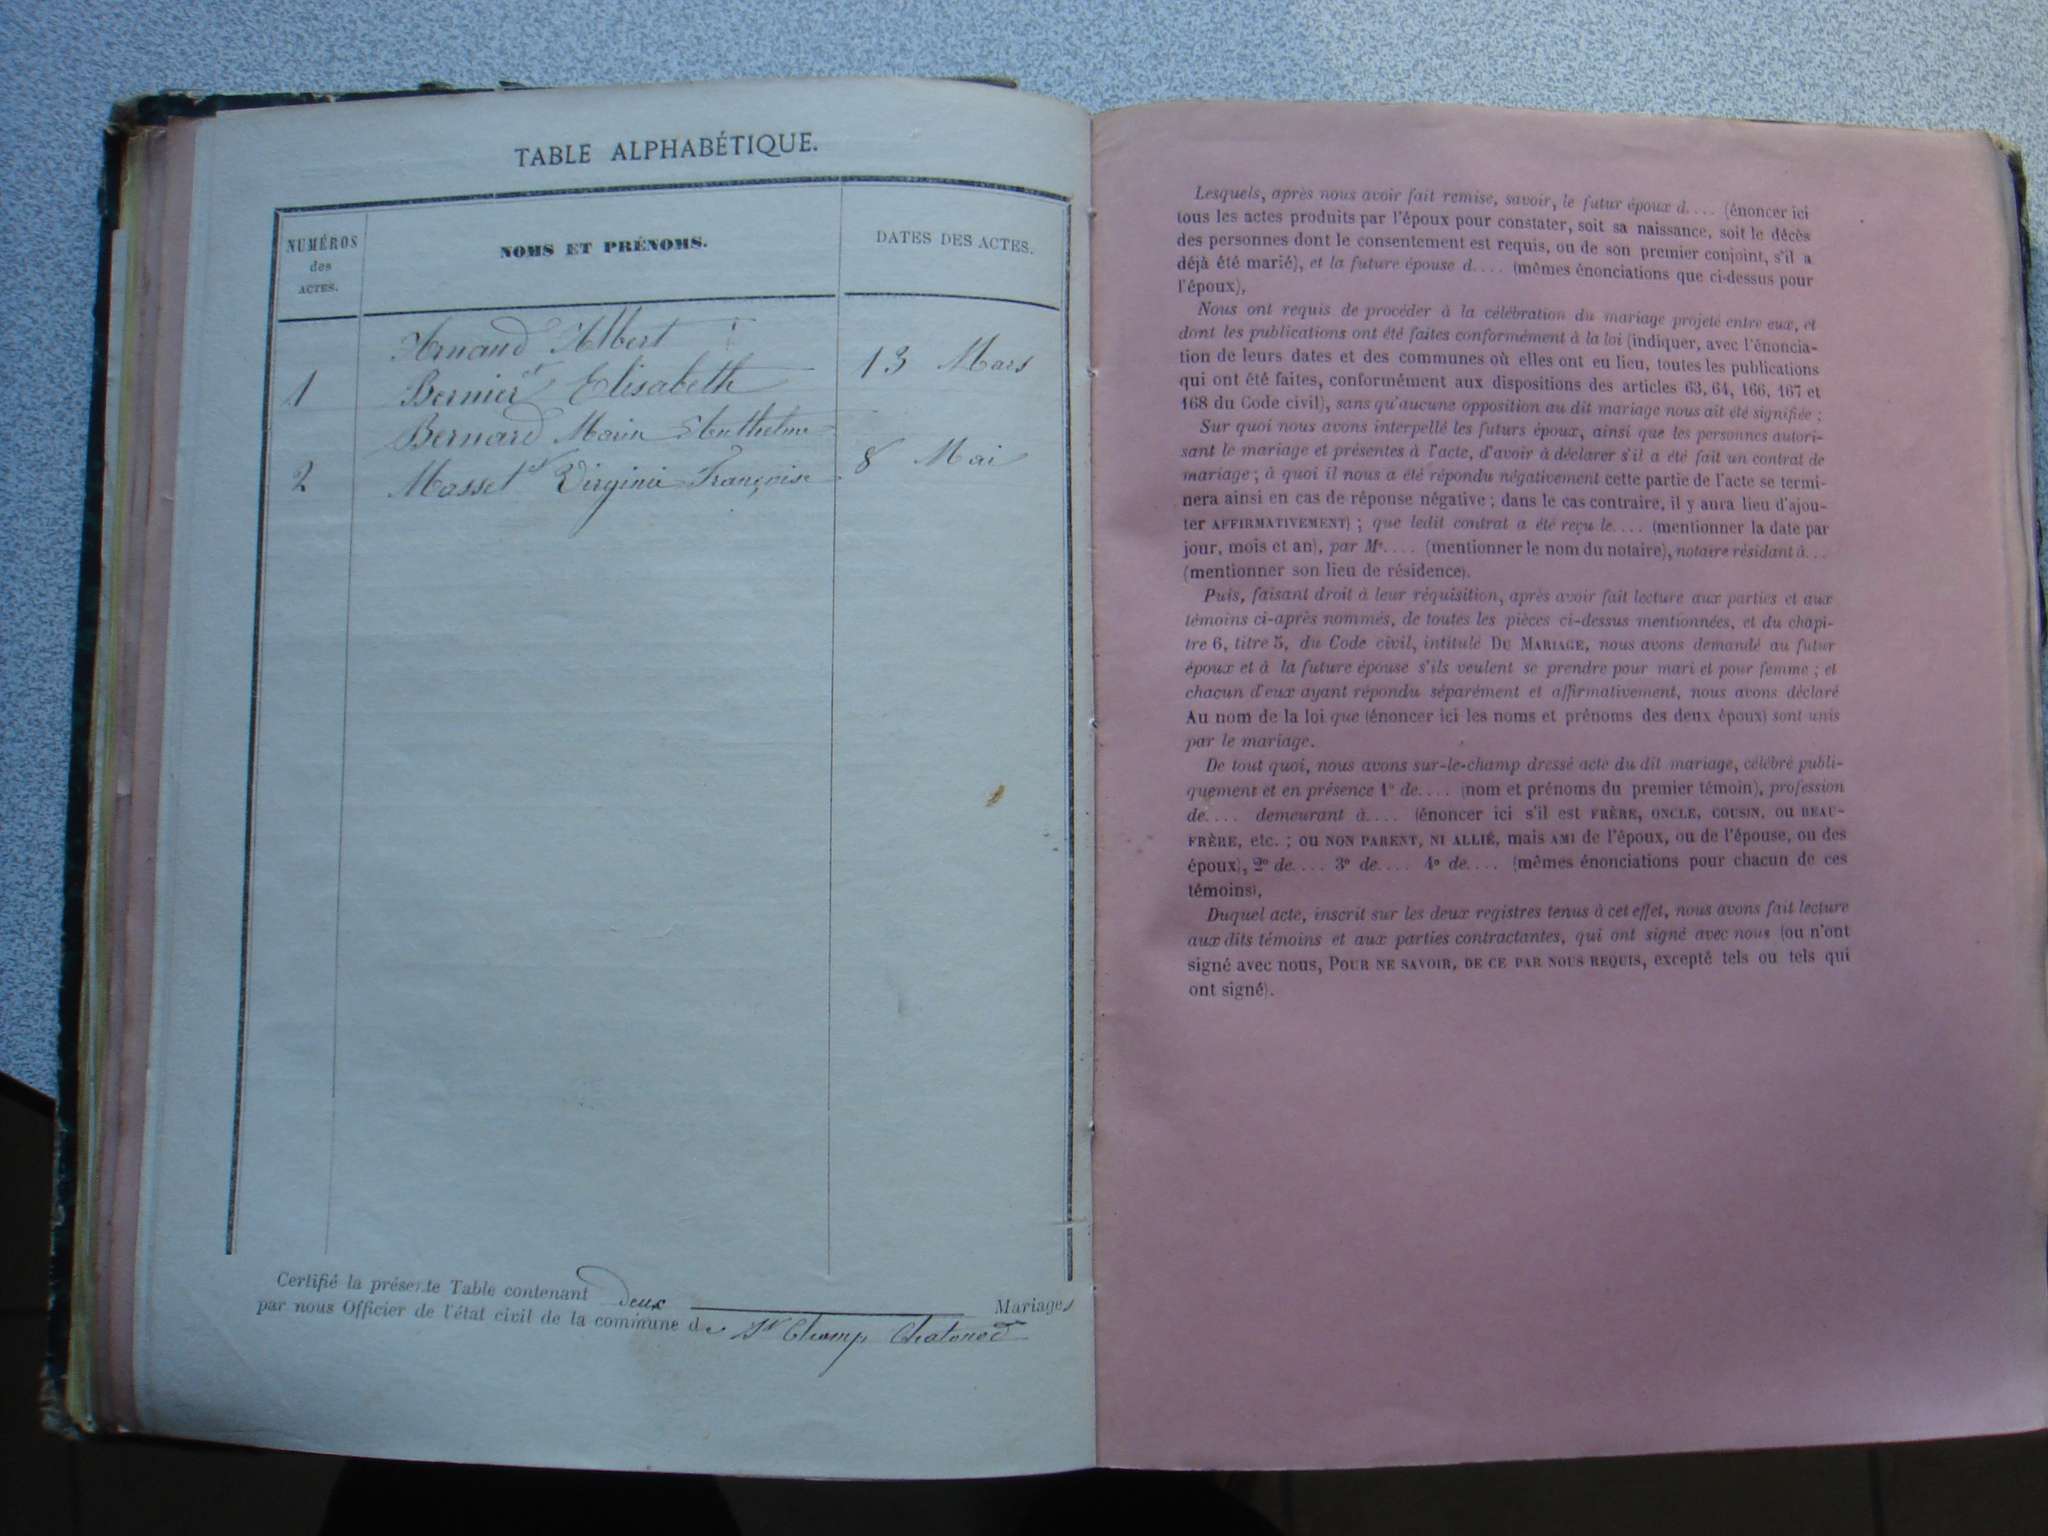 TABLE ALPHABÉTIQUE.
NUMÉROS
des
ACTES.
NOMS ET PRÉNOMS.
DATES DES ACTES.
Arnaud Albert
1 Bernier et Elisabeth 13 Mars
Bernard Marin Anthelme
2 Mosset et Virginie Françoise 8 Mai
Certifié la présente Table contenant deux Mariages
par nous Officier de l'état civil de la commune de St Champ Chatonod
Lesquels, après nous avoir fait remise, savoir, le futur époux d.... (énoncer ici
tous les actes produits par l'époux pour constater, soit sa naissance, soit le décès
des personnes dont le consentement est requis, ou de son premier conjoint, s'il a
déjà été marié), et la future épouse d.... (mêmes énonciations que ci-dessus pour
l'époux),
Nous ont requis de procéder à la célébration du mariage projeté entre eux, et
dont les publications ont été faites conformément à la loi (indiquer, avec l'énoncia-
tion de leurs dates et des communes où elles ont eu lieu, toutes les publications
qui ont été faites, conformément aux dispositions des articles 63, 64, 166, 167 et
168 du Code civil), sans qu'aucune opposition au dit mariage nous ait été signifiée :
Sur quoi nous avons interpellé les futurs époux, ainsi que les personnes autori-
sant le mariage et présentes à l'acte, d'avoir à déclarer s'il a été fait un contrat de
mariage ; à quoi il nous a été répondu négativement cette partie de l'acte se termi-
nera ainsi en cas de réponse négative ; dans le cas contraire, il y aura lieu d'ajou-
ter AFFIRMATIVEMENT) ; que ledit contrat a été reçu le.... (mentionner la date par
jour, mois et an), par Me.... (mentionner le nom du notaire), notaire résidant à...
(mentionner son lieu de résidence).
Puis, faisant droit à leur réquisition, après avoir fait lecture aux parties et aux
témoins ci-après nommés, de toutes les pièces ci-dessus mentionnées, et du chapi-
tre 6, titre 5, du Code civil, intitulé DU MARIAGE, nous avons demandé au futur
époux et à la future épouse s'ils veulent se prendre pour mari et pour femme ; et
chacun d'eux ayant répondu séparément et affirmativement, nous avons déclaré
Au nom de la loi que (énoncer ici les noms et prénoms des deux époux) sont unis
par le mariage.
De tout quoi, nous avons sur-le-champ dressé acte du dit mariage, célébré publi-
quement et en présence 1° de.... (nom et prénoms du premier témoin), profession
de.... demeurant à.... (énoncer ici s'il est FRÈRE, ONCLE, COUSIN, ou BEAU-
FRÈRE, etc. ; ou NON PARENT, NI ALLIÉ, mais AMI de l'époux, ou de l'épouse, ou des
époux), 2° de.... 3° de.... 4° de.... (mêmes énonciations pour chacun de ces
témoins),
Duquel acte, inscrit sur les deux registres tenus à cet effet, nous avons fait lecture
aux dits témoins et aux parties contractantes, qui ont signé avec nous (ou n'ont
signé avec nous, POUR NE SAVOIR, DE CE PAR NOUS REQUIS, excepté tels ou tels qui
ont signé).